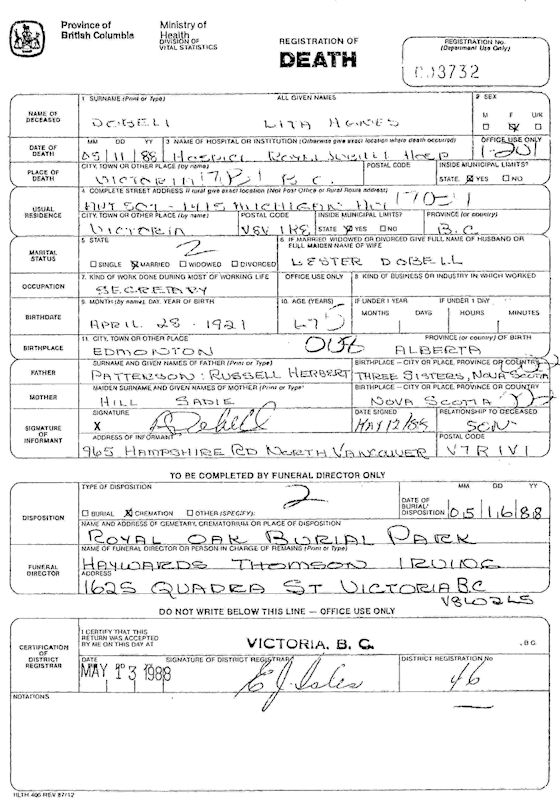 Province of British Columbia
Ministry of Health
DIVISION OF VITAL STATISTICS
REGISTRATION OF
DEATH
REGISTRATION No.
(Department Use Only)
003732
NAME OF DECEASED
1 SURNAME (Print or Type) ALL GIVEN NAMES
DOBELL LITA AGNES
2 SEX
M F U/K
DATE OF DEATH
MM DD YY
05 11 88
3 NAME OF HOSPITAL OR INSTITUTION (Otherwise give exact location where death occurred)
HOSPICE ROYAL JUBILEE HOSP
OFFICE USE ONLY
1-201
PLACE OF DEATH
CITY, TOWN OR OTHER PLACE (by name) POSTAL CODE INSIDE MUNICIPAL LIMITS?
VICTORIA B.C. STATE YES NO
USUAL RESIDENCE
4 COMPLETE STREET ADDRESS If rural give exact location (Not Post Office or Rural Route address)
1415 MICHIGAN 170-1
CITY, TOWN OR OTHER PLACE (by name) POSTAL CODE INSIDE MUNICIPAL LIMITS? PROVINCE (or country)
VICTORIA V8V 1R8 STATE YES NO B.C.
MARITAL STATUS
5 STATE
2
SINGLE MARRIED WIDOWED DIVORCED
6 IF MARRIED WIDOWED OR DIVORCED GIVE FULL NAME OF HUSBAND OR FULL MAIDEN NAME OF WIFE
LESTER DOBELL
OCCUPATION
7. KIND OF WORK DONE DURING MOST OF WORKING LIFE OFFICE USE ONLY 8 KIND OF BUSINESS OR INDUSTRY IN WHICH WORKED
SECRETARY
BIRTHDATE
9. MONTH (by name), DAY, YEAR OF BIRTH 10. AGE (YEARS) IF UNDER 1 YEAR IF UNDER 1 DAY
MONTHS DAYS HOURS MINUTES
APRIL 28 - 1921 67
BIRTHPLACE
11 CITY, TOWN OR OTHER PLACE PROVINCE (or country) OF BIRTH
EDMONTON ALBERTA
FATHER
SURNAME AND GIVEN NAMES OF FATHER (Print or Type) BIRTHPLACE - CITY OR PLACE, PROVINCE OR COUNTRY
PATTERSON: RUSSELL HERBERT THREE SISTERS, NOVA SCOTIA
MOTHER
MAIDEN SURNAME AND GIVEN NAMES OF MOTHER (Print or Type) BIRTHPLACE - CITY OR PLACE, PROVINCE OR COUNTRY
HILL SADIE NOVA SCOTIA
SIGNATURE OF INFORMANT
SIGNATURE DATE SIGNED RELATIONSHIP TO DECEASED
X Dobell MAY 12/88 SON
ADDRESS OF INFORMANT POSTAL CODE
965 HAMPSHIRE RD NORTH VANCOUVER V7R 1V1
TO BE COMPLETED BY FUNERAL DIRECTOR ONLY
DISPOSITION
TYPE OF DISPOSITION
2
BURIAL CREMATION OTHER (SPECIFY):
DATE OF BURIAL/DISPOSITION
MM DD YY
05 16 88
NAME AND ADDRESS OF CEMETARY, CREMATORIUM OR PLACE OF DISPOSITION
ROYAL OAK BURIAL PARK
FUNERAL DIRECTOR
NAME OF FUNERAL DIRECTOR OR PERSON IN CHARGE OF REMAINS (Print or Type)
HAYWARDS THOMSON IRVING
ADDRESS
1625 QUADRA ST VICTORIA BC
V8W 2L5
DO NOT WRITE BELOW THIS LINE — OFFICE USE ONLY
CERTIFICATION OF DISTRICT REGISTRAR
I CERTIFY THAT THIS RETURN WAS ACCEPTED BY ME ON THIS DAY AT
VICTORIA, B. C. , B.C.
DATE SIGNATURE OF DISTRICT REGISTRAR DISTRICT REGISTRATION No
MAY 13 1988 46
NOTATIONS
HLTH 406 REV 87/12